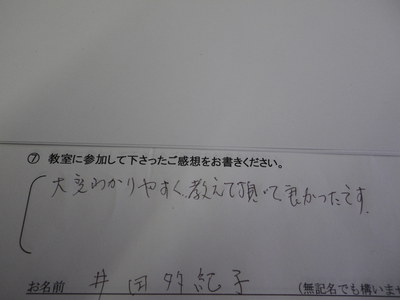 ⑦ 教室に参加して下さったご感想をお書きください。
大変わかりやすく、教えて頂いて良かったです。
お名前 井田多紀子 (無記名でも構いませ